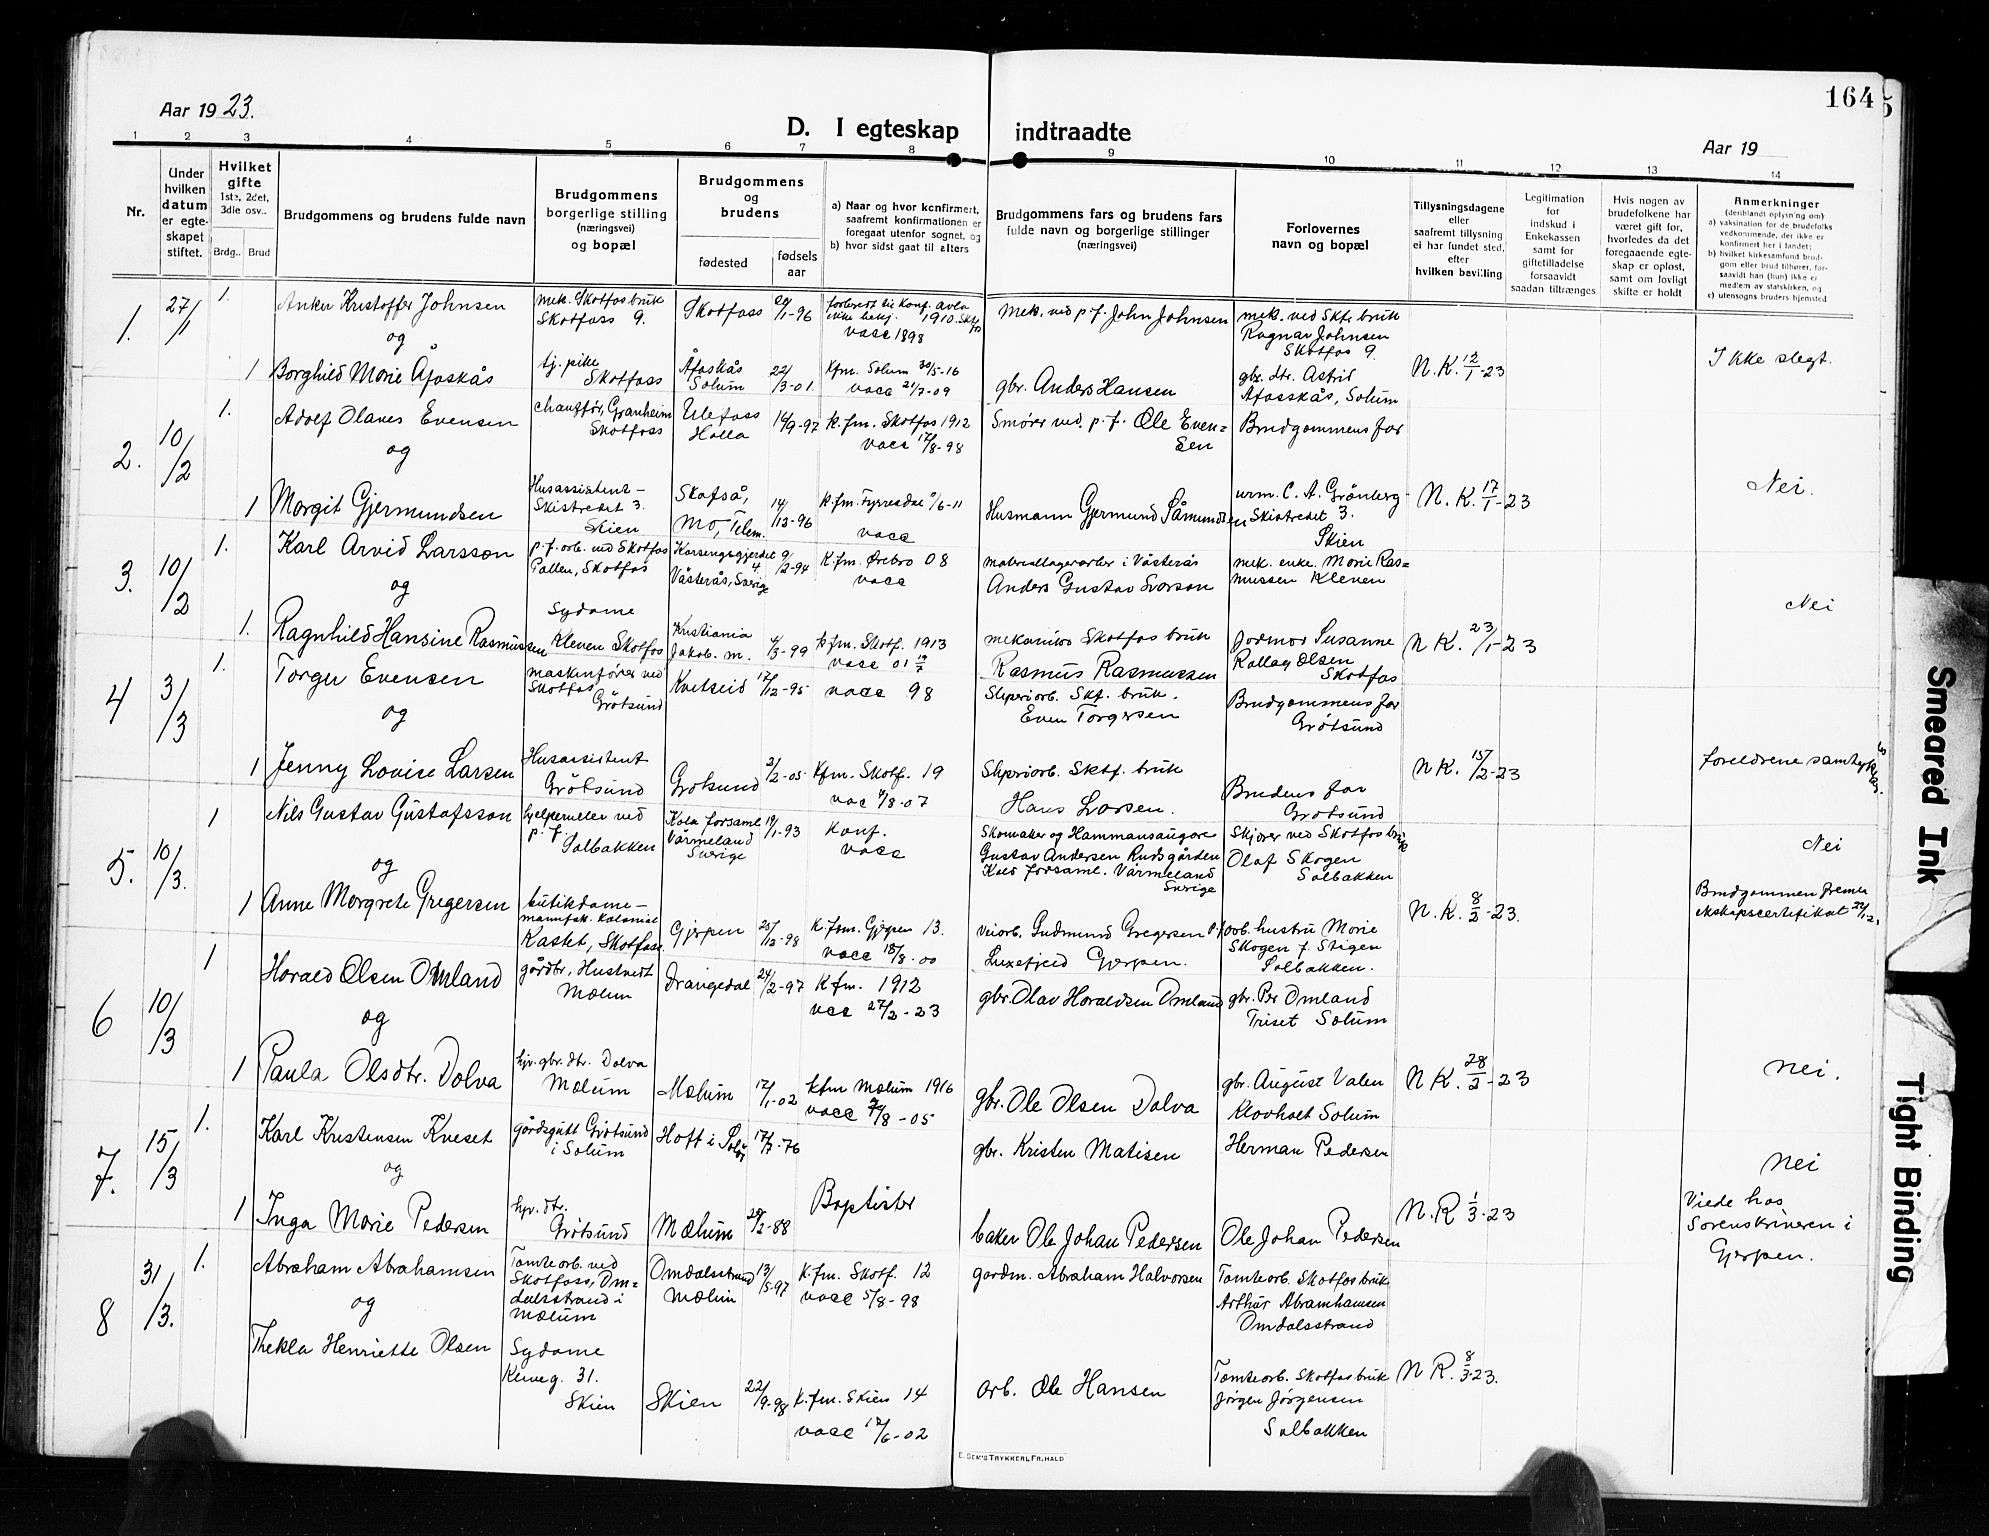 164
Aar 1923.
D. I egteskap indtraadte
Aar 19
1 2 3 4 5 6 7 8 9 10 11 12 13 14
Nr.
Under hvilken datum er egteskapet stiftet.
Hvilket gifte
1ste, 2det, 3die osv..
Brdg.. Brud
Brudgommens og brudens fulde navn
Brudgommens borgerlige stilling (næringsvei) og bopæl
Brudgommens og brudens
fødested
fødselsaar
a) Naar og hvor konfirmert, saafremt konfirmationen er foregaat utenfor sognet, og
b) hvor sidst gaat til alters
Brudgommens fars og brudens fars fulde navn og borgerlige stillinger (næringsvei)
Forlovernes navn og bopæl
Tillysningsdagene eller saafremt tillysning ei har fundet sted, efter hvilken bevilling
Legitimation for indskud i Enkekassen samt for giftetilladelse forsaavidt saadan tiltrænges
Hvis nogen av brudefolkene har været gift før, hvorledes da det foregaaende egteskap er opløst, samt om lovligt skifte er holdt
Anmerkninger
(deriblandt oplysning om)
a) vaksination for de brudefolks vedkommende, der ikke er konfirmert her i landet;
b) hvilket kirkesamfund brudgom eller brud tilhører, forsaavidt han (hun) ikke er medlem av statskirken, og
c) utensogns bruders hjemsted
1. 27/1 1. Anker Kristoffer Johnsen
mek. Skotfos bruk
Skotfoss 9.
Skotfoss
vacc 1898
Mek. ved p.f. John Johnsen
mek. ved Skf. bruk
Ragnar Johnsen
Skotfos 9.
og
1 Borghild Marie Åfoskås
tj. pike
Skotfoss
Åfoskås
Solum
22/3-01.
Kfm. Solum 30/5-16
gbr. Anders Hansen
gbr. dtr. Astrid
Afosskås, Solum
N.K. 12/1-23
Ikke slegt.
2. 10/2 1. Adolf Olaves Evensen
chauffør, Granheim
Skotfoss
Ulefoss
Holla
16/9-97
K.fm. Skotfos 1912
vacc 17/8-98
Smører ved p.f. Ole Even=
sen
Brudgommens far
og
1 Margit Gjermundsen
Husassistent-
Skistredet 3.
Skien
Skafså,
Mo, Telem.
14/12-96
K.fm. Fyresdal
vacc
Husmann Gjermund Såmundsen
urm. C. A. Grönberg-
Skistredet 3.
Skien
N.K. 17/1-23
Nei.
3. 10/2 1. Karl Arvid Larsson
p.f. arb. ved Skotfos
Pallen, Skotfos
Västerås, Sverige
9/2-94
K.fm. Ørebro 08
vacc
materiallagerarber i Västerås
Anders Gustav Larson
mek. enke. Marie Ras=
mussen Kleven
og
1. Ragnhild Hansine Rasmussen
Sydame
Kleven Skotfos
Kristiania
Jakob. m.
4/3-99
K.fm. Skotf. 1913
vacc 01
mekanior Skotfos bruk
Rasmus Rasmussen
Jordmor Susanne
Rollag Olsen
Skotfos
N K. 23/1-23
Nei
4 3/3 1. Torger Evensen
maskinfører ved
Skotfos
Grötsund
Kviteseid
17/12-95
vacc 98
Sliperiarb. Skf. bruk.
Even Torgersen
Brudgommens far
Grötsund
og
1 Jenny Lovise Larsen
Husassistent
Grötsund
Grötsund
2/2-05
Kfm. Skotf. 19
vac 4/8-07
Sliperiarb. Sktf. bruk
Hans Larsen.
Brudens far
Grötsund
N K. 15/2-23
foreldrene samtykkes.
5. 10/3. 1 Nils Gustav Gustafsson
hjelpemeler ved
p. f.
Solbakken
Kola forsaml.
Värmeland
Sverige
19/1-93
Konf.
vacc
Skomaker og Hammansaugare
Gustav Andersen Rudsgården
Kola forsaml. Värmeland
Sverige
Skjører ved Skotfos bruk
Olaf Skogen
Solbakken
Nei
og
1 Anne Margrete Gregersen
butikdame-
manufak. kolonial
Kastet, Skotfoss
Gjerpen
25/12-98
K.fm. Gjerpen 13.
vacc 18/8-00
veiarb. Gudmund Gregersen
Luxefjeld Gjerpen.
arb. hustru Marie
Skogen f. Stigen
Solbakken.
N.K. 8/2-23.
Brudgommen fremla
ekskapscertifikat
6 10/3 1 Harald Olsen Omland
gårdbr, Hustvedt
Mælum
Drangedal
24/2-97
K fm. 1912
vcc 27/2-23
gbr. Olav Haraldsen Omland
gbr. Per Omland
Triset Solum
og
1 Paula Olsdtr. Dolva
hjv. gbr. dtr. Dolva
Mælum
Mælum
17/1-02
kfm Mælum 1916
gbr. Ole Olsen Dolva
gbr. August Valen
Klovholt Solum
N K. 28/2-23
Nei.
7. 15/3 1. Karl Kristensen Kveset
gårdsgutt Grötsund
i Solum
Hoff i Solør
17/7-76
gbr. Kristen Matisen
Herman Pedersen
Nei
og
Baptister
1 Inga Marie Pedersen
hjv. dtr.
Grötsund
Mælum
baker Ole Johan Pedersen
Ole Johan Pedersen
N.R 1/3-23
Viede hos
Sorenskriveren i
Gjerpen.
8 31/3. 1. Abraham Abrahamsen
Tomtearb. ved
Skotfoss, Om=
dalsstrand i
Mælum
Omdalsstrand
Mælum
13/5-97
K.fm. Skotf. 12
vacc 5/8-98
gardm. Abraham Halvorsen
Tomtearb. Skotfos bruk
Arthur Abramhamsen
Omdalsstrand
og
Thekla Henriette Olsen
Sydame
31.
Skien
Skien
22/9-98
K.fm. Skien 14
vacc 17/6-02
arb. Ole Hansen
Tomtearb. Skotfos bruk
Jörgen Jörgensen
Solbakken
N R. 8/3-23.
E. SEM'S TRYKKERI, FR.HALD
Smeared Ink
Tight Binding